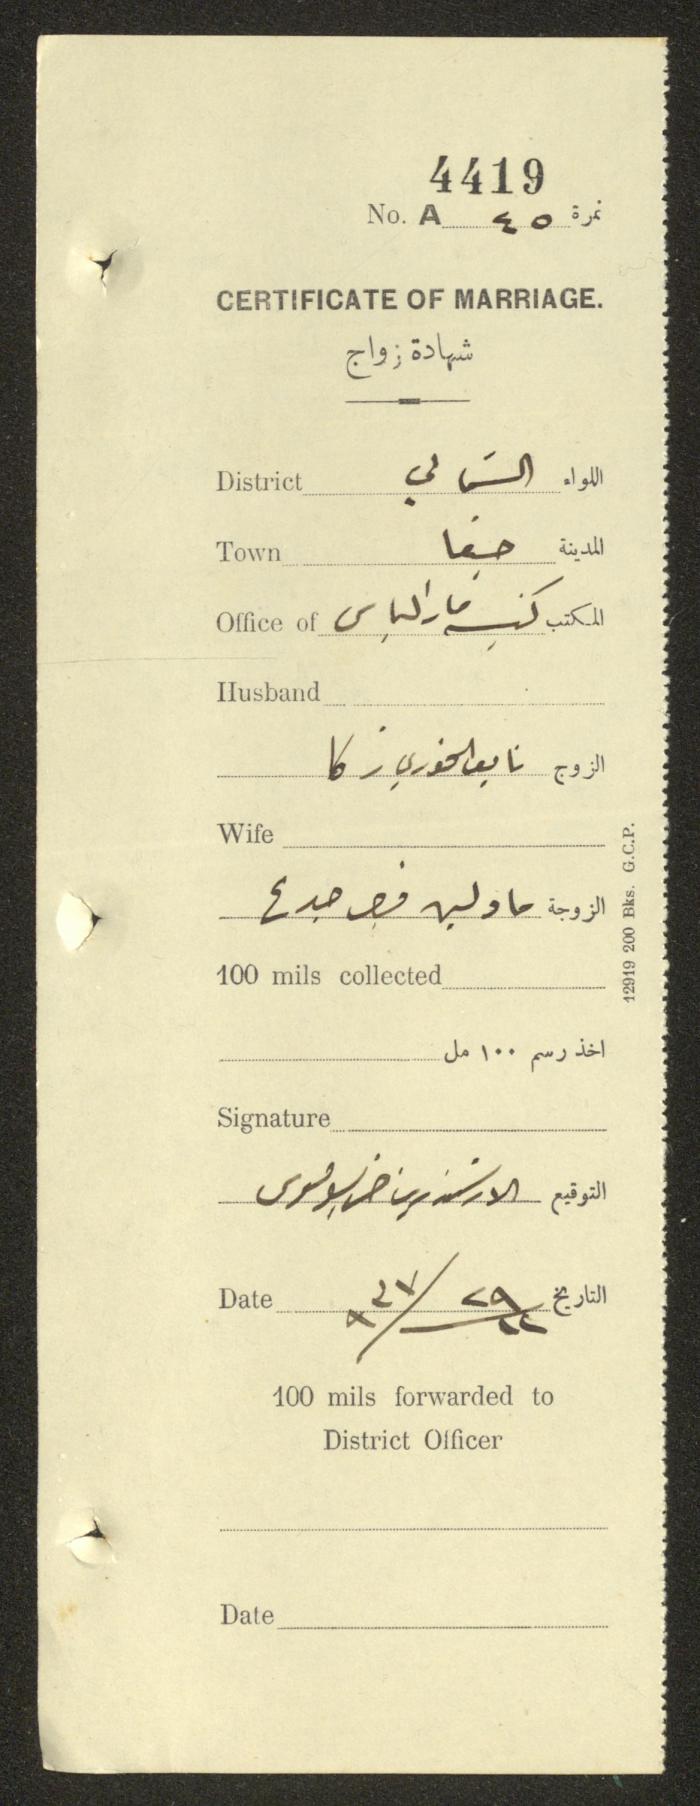 4419
No. A ٤٥ نمرة
CERTIFICATE OF MARRIAGE.
شهادة زواج
District الشمالي اللواء
Town حيفا المدينة
Office of كنيسة مار الياس المكتب
Husband
الزوج نايف الخوري زكا
Wife
الزوجة جدع
100 mils collected
اخذ رسم ١٠٠ مل
Signature
التوقيع
Date التاريخ
100 mils forwarded to
District Officer
Date
12919 200 Bks. G.C.P.